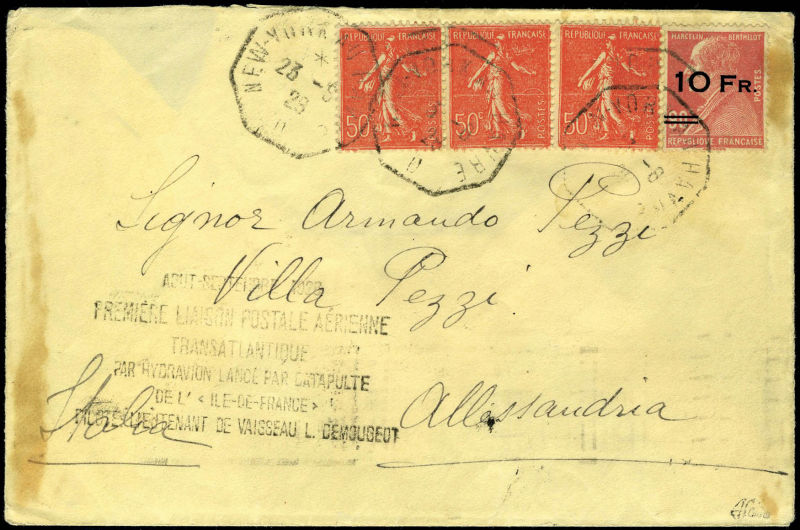 REPUBLIQUE FRANÇAISE
50c
POSTES
REPUBLIQUE FRANÇAISE
50c
POSTES
REPUBLIQUE FRANÇAISE
50c
POSTES
MARCELIN BERTHELOT
10 FR.
POSTES
REPVBLIQVE FRANÇAISE
NEW-YORK
23 -8
28
HAVRE
Signor Armando Pezzi
Villa Pezzi
AOUT-SEPTEMBRE 1928
PREMIÈRE LIAISON POSTALE AÉRIENNE
TRANSATLANTIQUE
PAR HYDRAVION LANCÉ PAR CATAPULTE
DE L' < ILE-DE-FRANCE >
PILOTE: LIEUTENANT DE VAISSEAU L. DEMOUGEOT
Allessandria
Italia